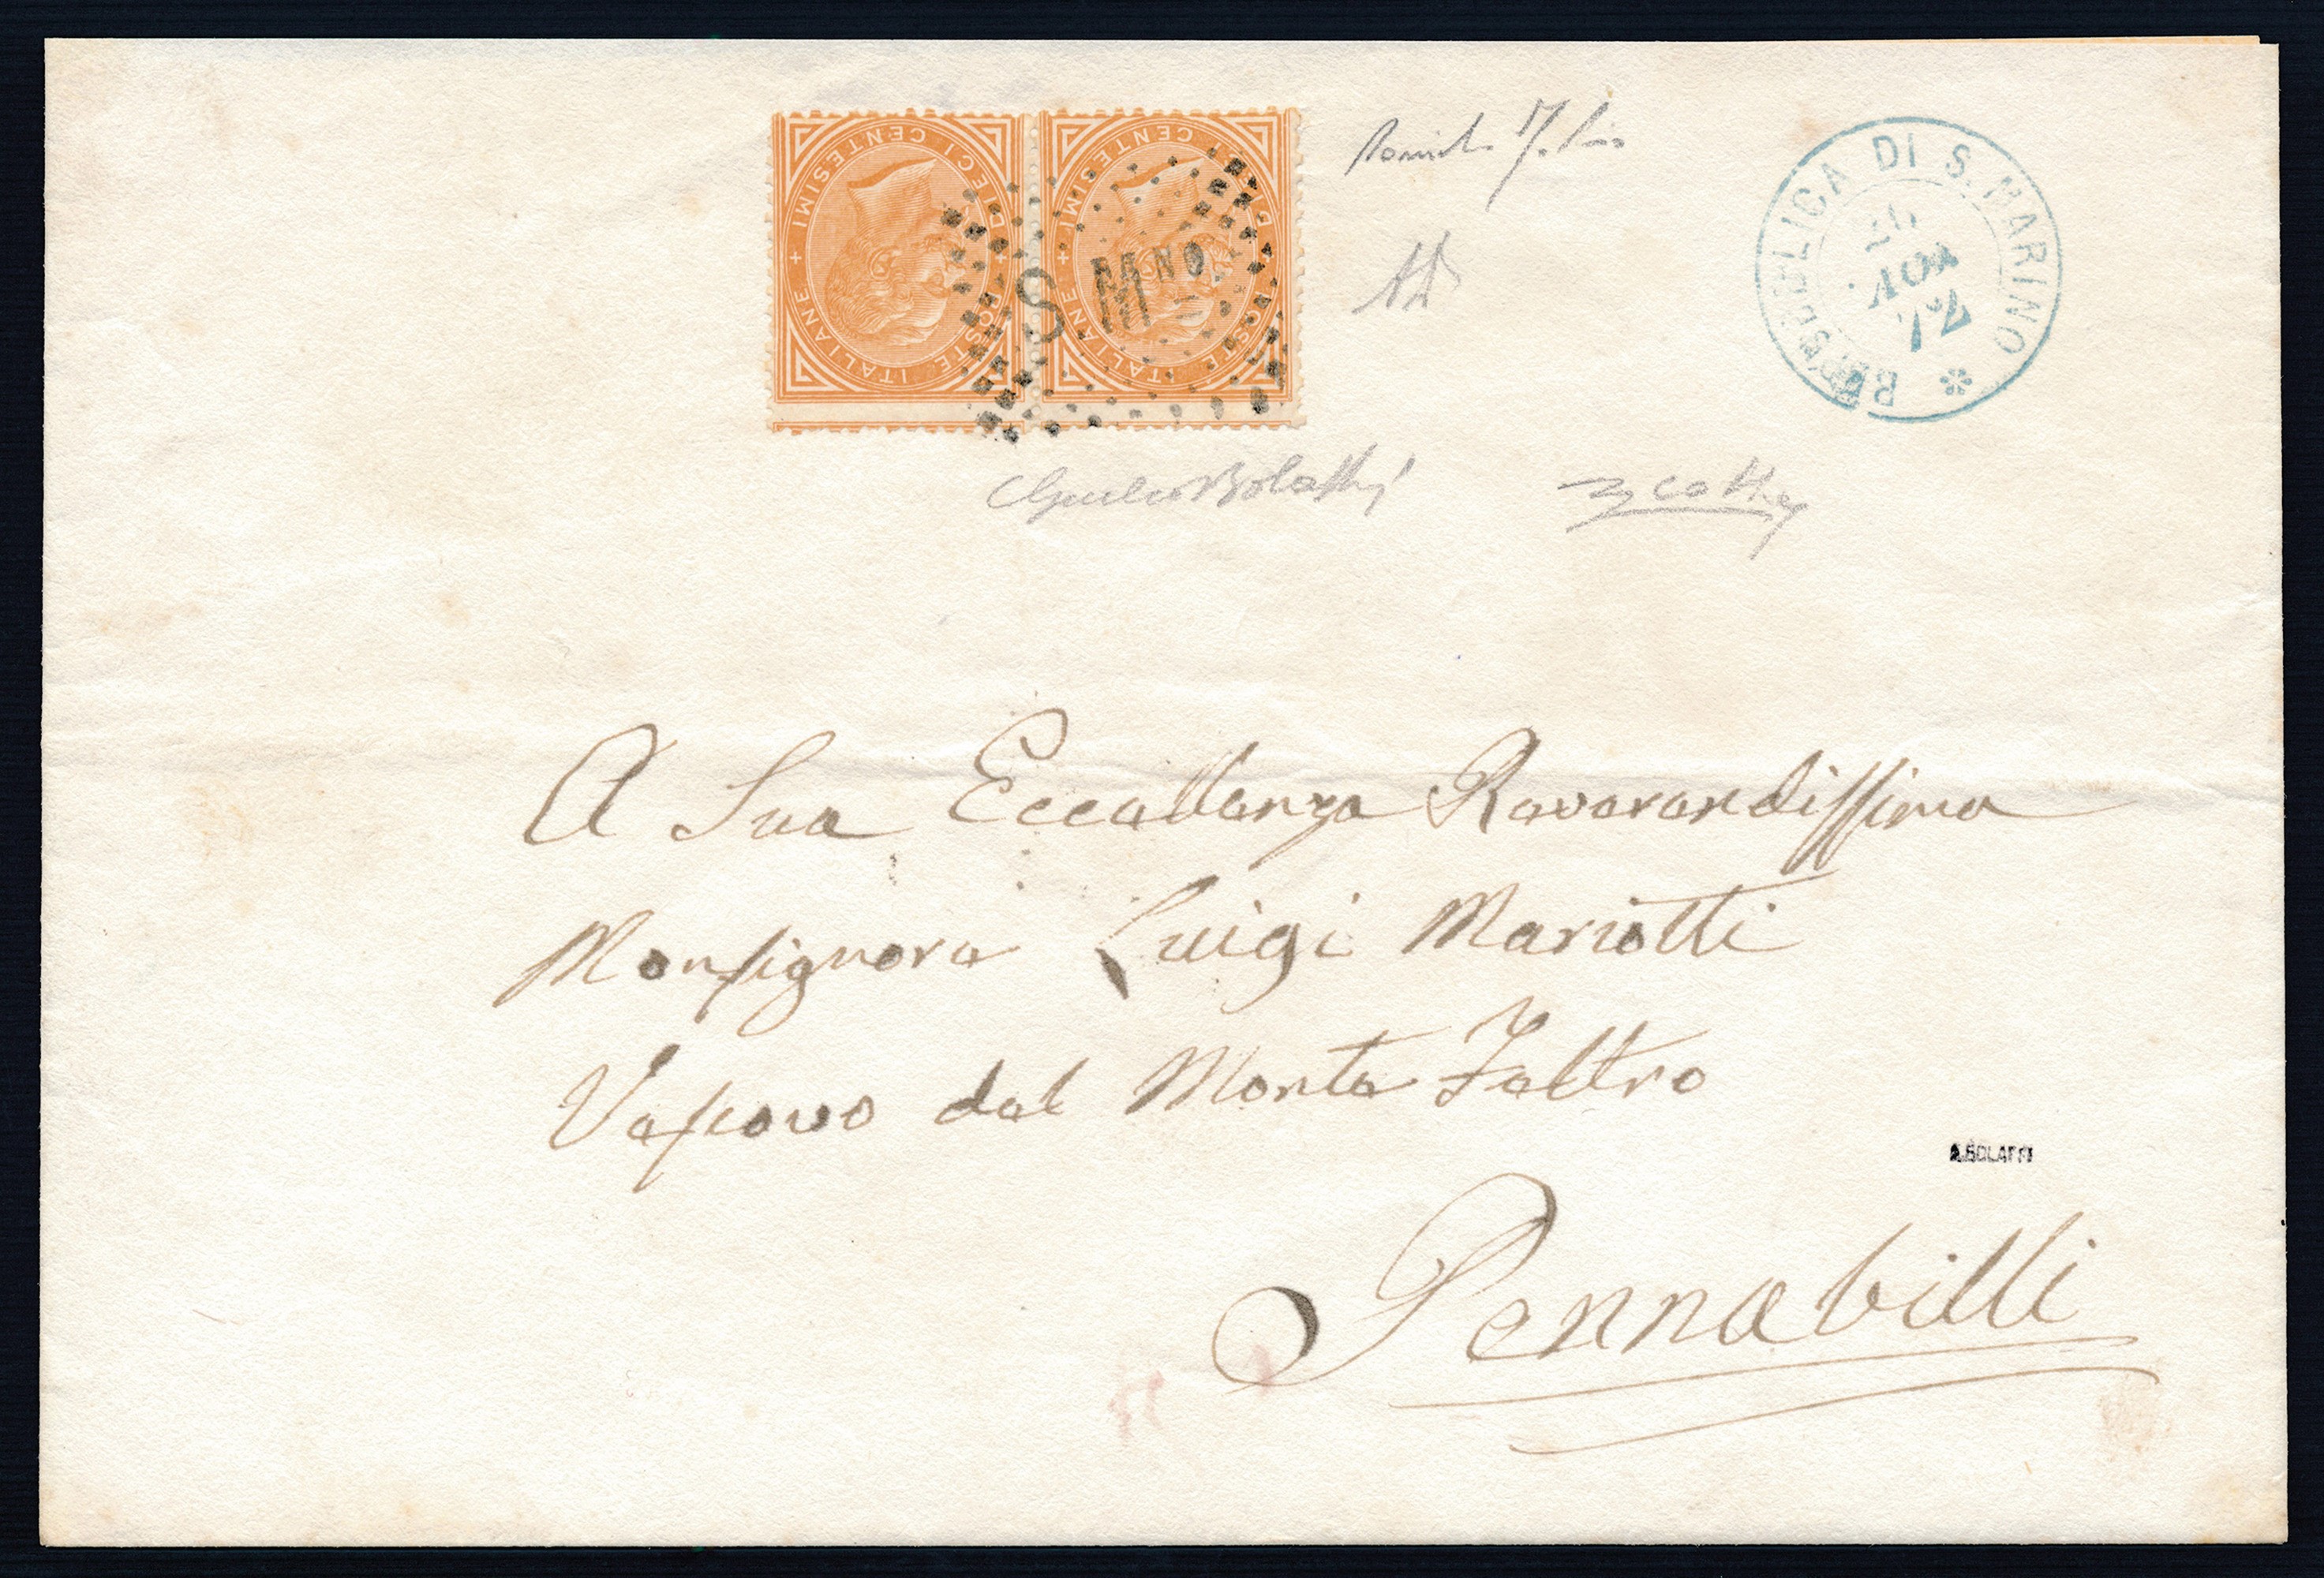 POSTE ITALIANE + DIECI CENTESIMI +
POSTE ITALIANE + DIECI CENTESIMI +
S MNO
REPUBBLICA DI S. MARINO *
NOV
72
Giulio Bolaffi
A Sua Eccellenza Reverendissima
Monsignore Luigi Mariotti
Vescovo del Monte Feltro
A.BOLAFFI
Pennabilli